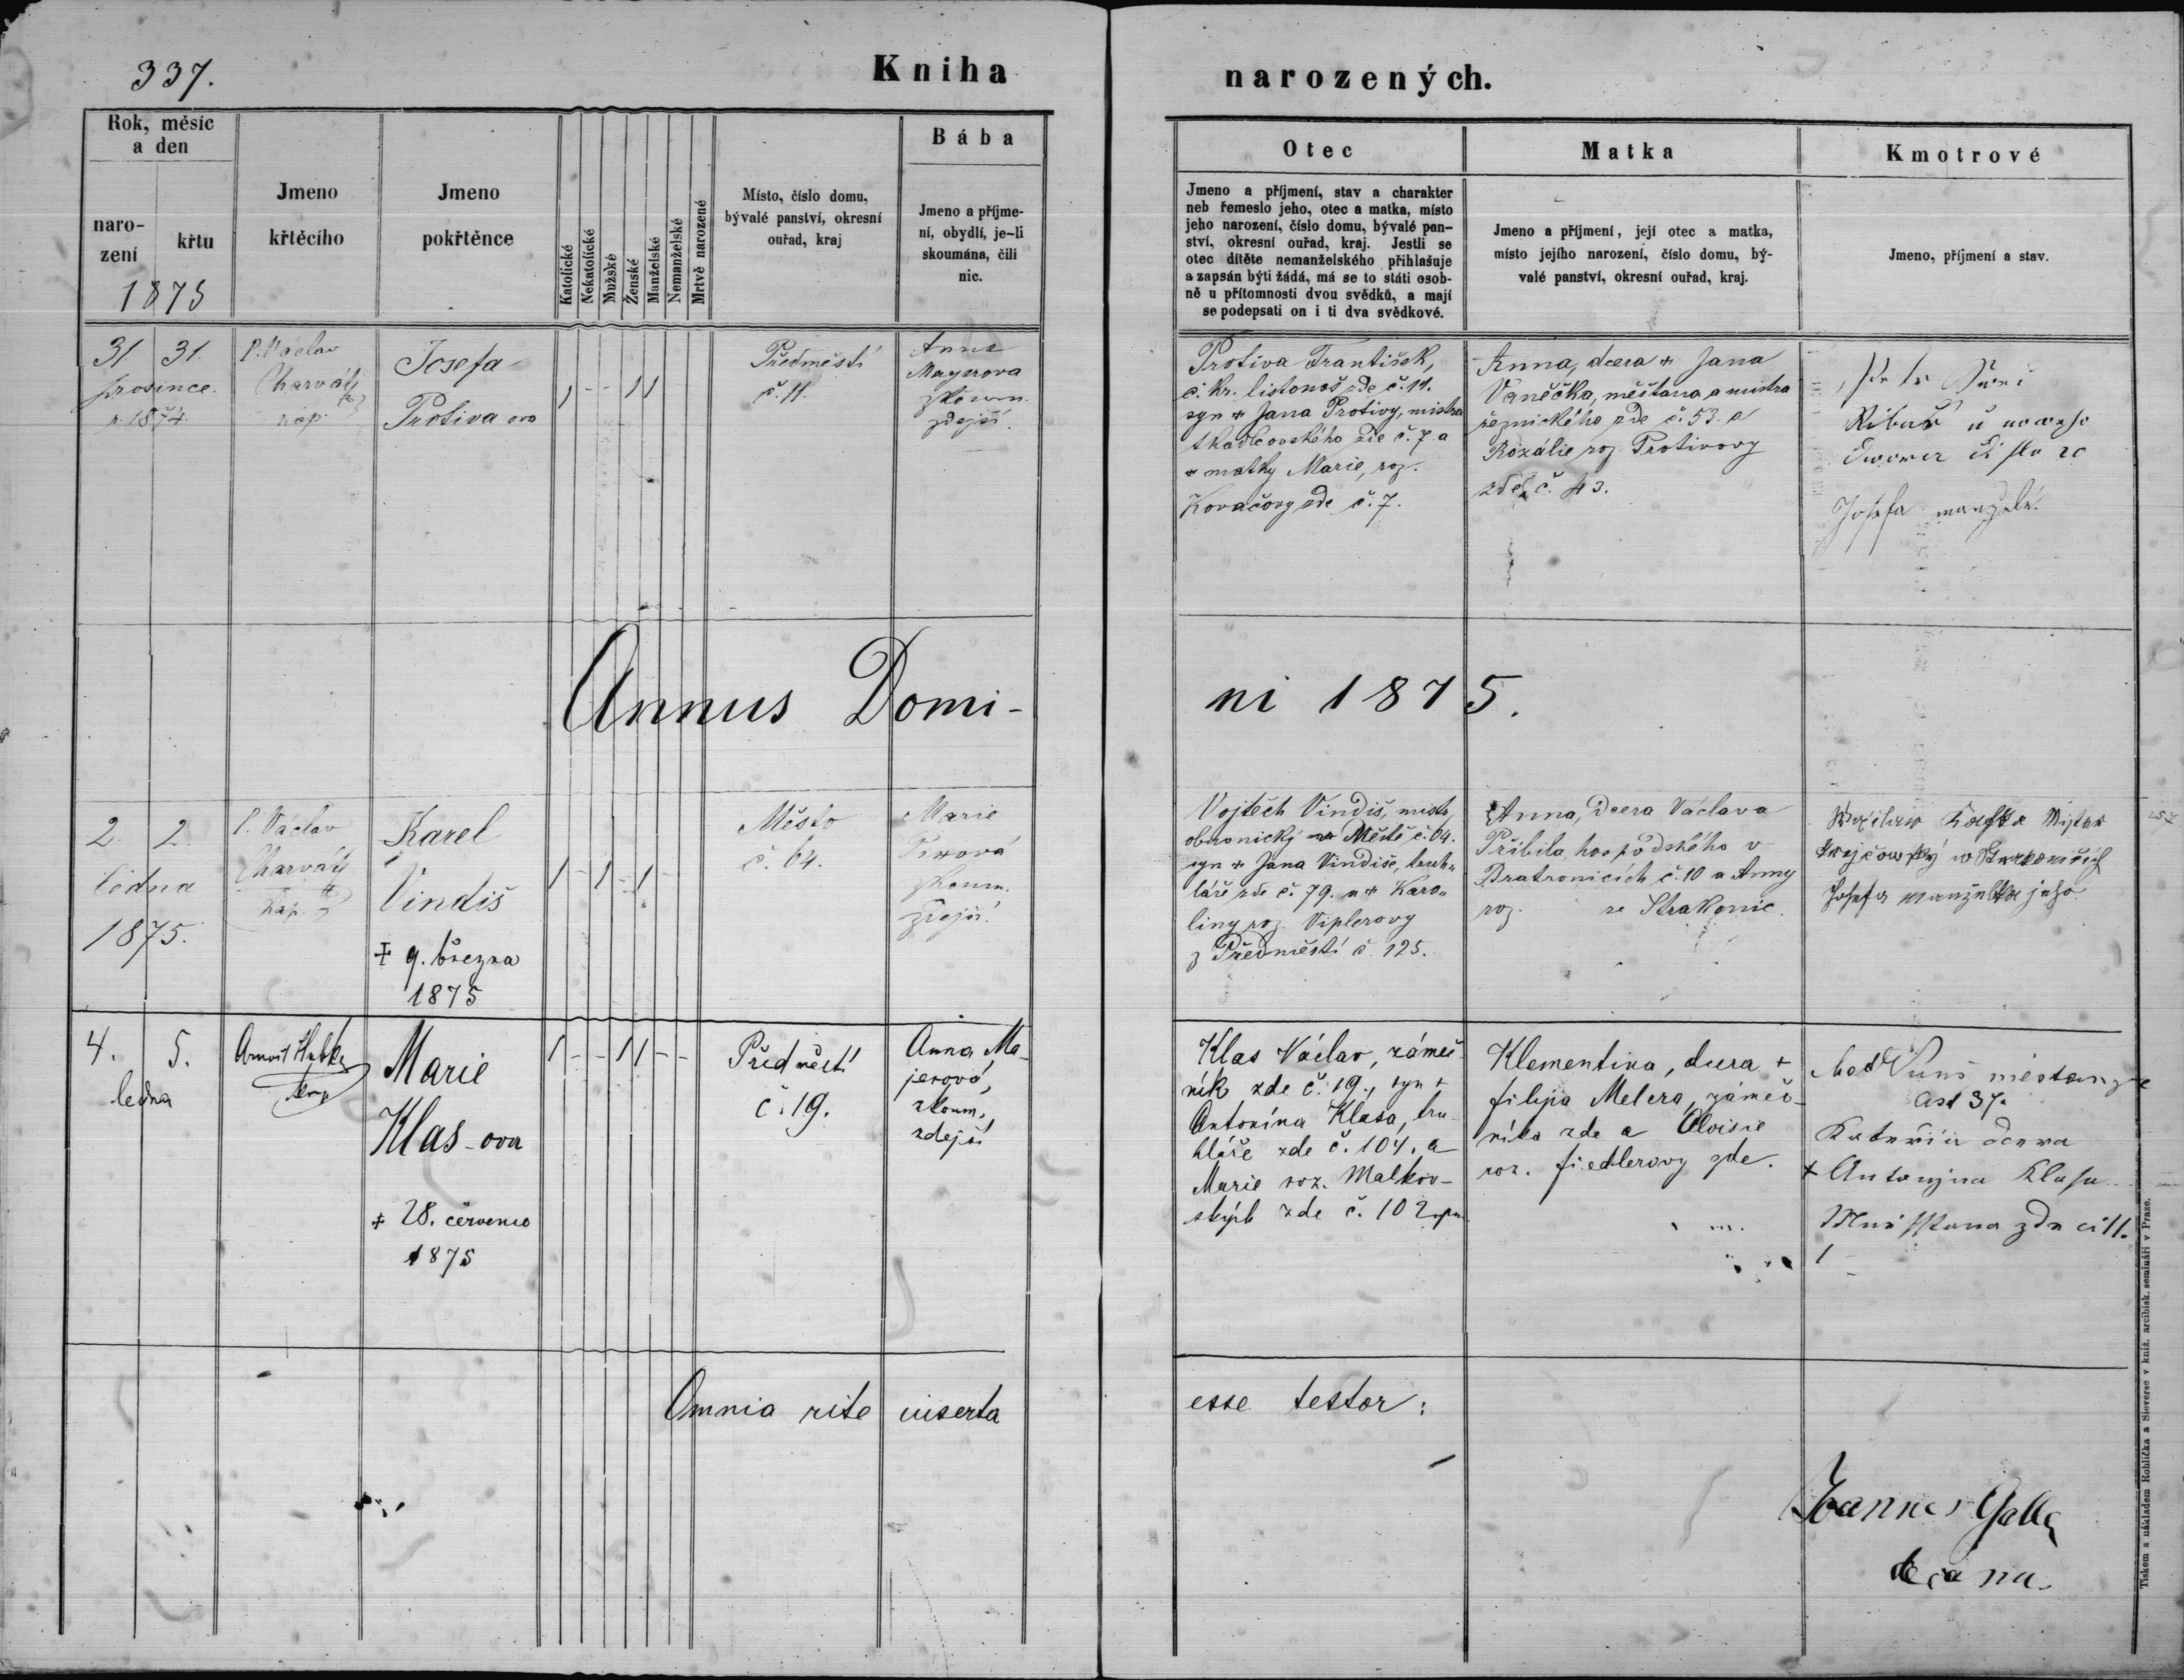 337.
Kniha
narozených.
Rok, měsíc
a den
naro-
zení
křtu
1875
Jmeno
křtěcího
Jmeno
pokřtěnce
Katolické
Nekatolické
Mužské
Ženské
Manželské
Nemanželské
Mrtvě narozené
Místo, číslo domu,
bývalé panství, okresní
ouřad, kraj
Bába
Jmeno a příjme-
ní, obydlí, je-li
skoumána, čili
nic.
Otec
Jmeno a příjmení, stav a charakter
neb řemeslo jeho, otec a matka, místo
jeho narození, číslo domu, bývalé pan-
ství, okresní ouřad, kraj. Jestli se
otec dítěte nemanželského přihlašuje
a zapsán býti žádá, má se to státi osob-
ně u přítomnosti dvou svědků, a mají
se podepsati on i ti dva svědkové.
Matka
Jmeno a příjmení, její otec a matka,
místo jejího narození, číslo domu, bý-
valé panství, okresní ouřad, kraj.
Kmotrové
Jmeno, příjmení a stav.
31 31.
prosince.
r. 1874.
P. Václav
Charvát
kap.
Josefa
Protiva ova
1 - - 1 1
Předměstí
č. 11.
Anna
Mayerova
zkoum.
zdejší.
Protiva František,
c. kr. listonoš zde č. 11.
syn + Jana Protivy, mistra
tkadlcovského zde č. 7 a
+ matky Marie, roz.
Kovačovy zde č. 7.
Anna, dcera + Jana
Vaněčka, měšťana a mistra
řeznického zde č. 53. a
Rozálie roz Protivovy
zde č. 43.
Josefa manželé.
Annus Domi-
ni 1875.
2. 2.
ledna
1875.
P. Václav
Charvát
kap.
Karel
Vindiš
+ 9. března
1875
1 - 1 - 1
Město
č. 64.
Marie
zkoum.
zdejší.
Vojtěch Vindiš, mistr
v Městě č. 64.
syn + Jana Vindiše, truh-
láře zde č. 79. a + Karo-
liny roz. Viplerovy
z Předměstí č. 125.
Anna, dcera Václava
Přibila, hospodského v
Bratronicích č. 10 a Anny
roz. ze Strakonic.
Mistr
Krejčowský w Strakonicích
Josefa manželka jeho.
4. 5.
ledna
Arnošt
kap
Marie
Klas-ova
+ 28. července
1875
1 - - 1 1 - -
Předměstí
č. 19.
Anna Ma-
jerová,
zkoum.
zdejší
Klas Václav, zámeč-
ník zde č. 19., syn +
Antonína Klasa, tru-
hláře zde č. 104. a
Marie roz. Malkov-
ských zde č. 102
Klementina, dcera +
filipa Melera, zámeč-
níka zde a Aloisie
roz. fiedlerovy zde.
37.
dcera
+ Antonjna Klasa
zde 11.
Omnia rite inserta
esse testor:
Joannes Galla